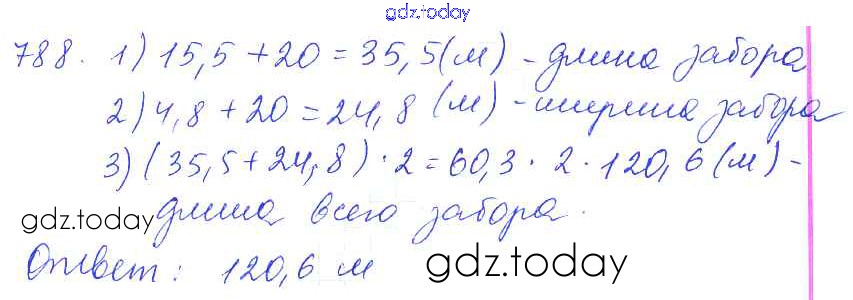 gdz.today
788. 1) 15,5 + 20 = 35,5 (м) - длина забора
2) 4,8 + 20 = 24,8 (м) - ширина забора
3) (35,5 + 24,8) · 2 = 60,3 · 2 · 120,6 (м) -
gdz.today длина всего забора.
Ответ: 120,6 м
gdz.today